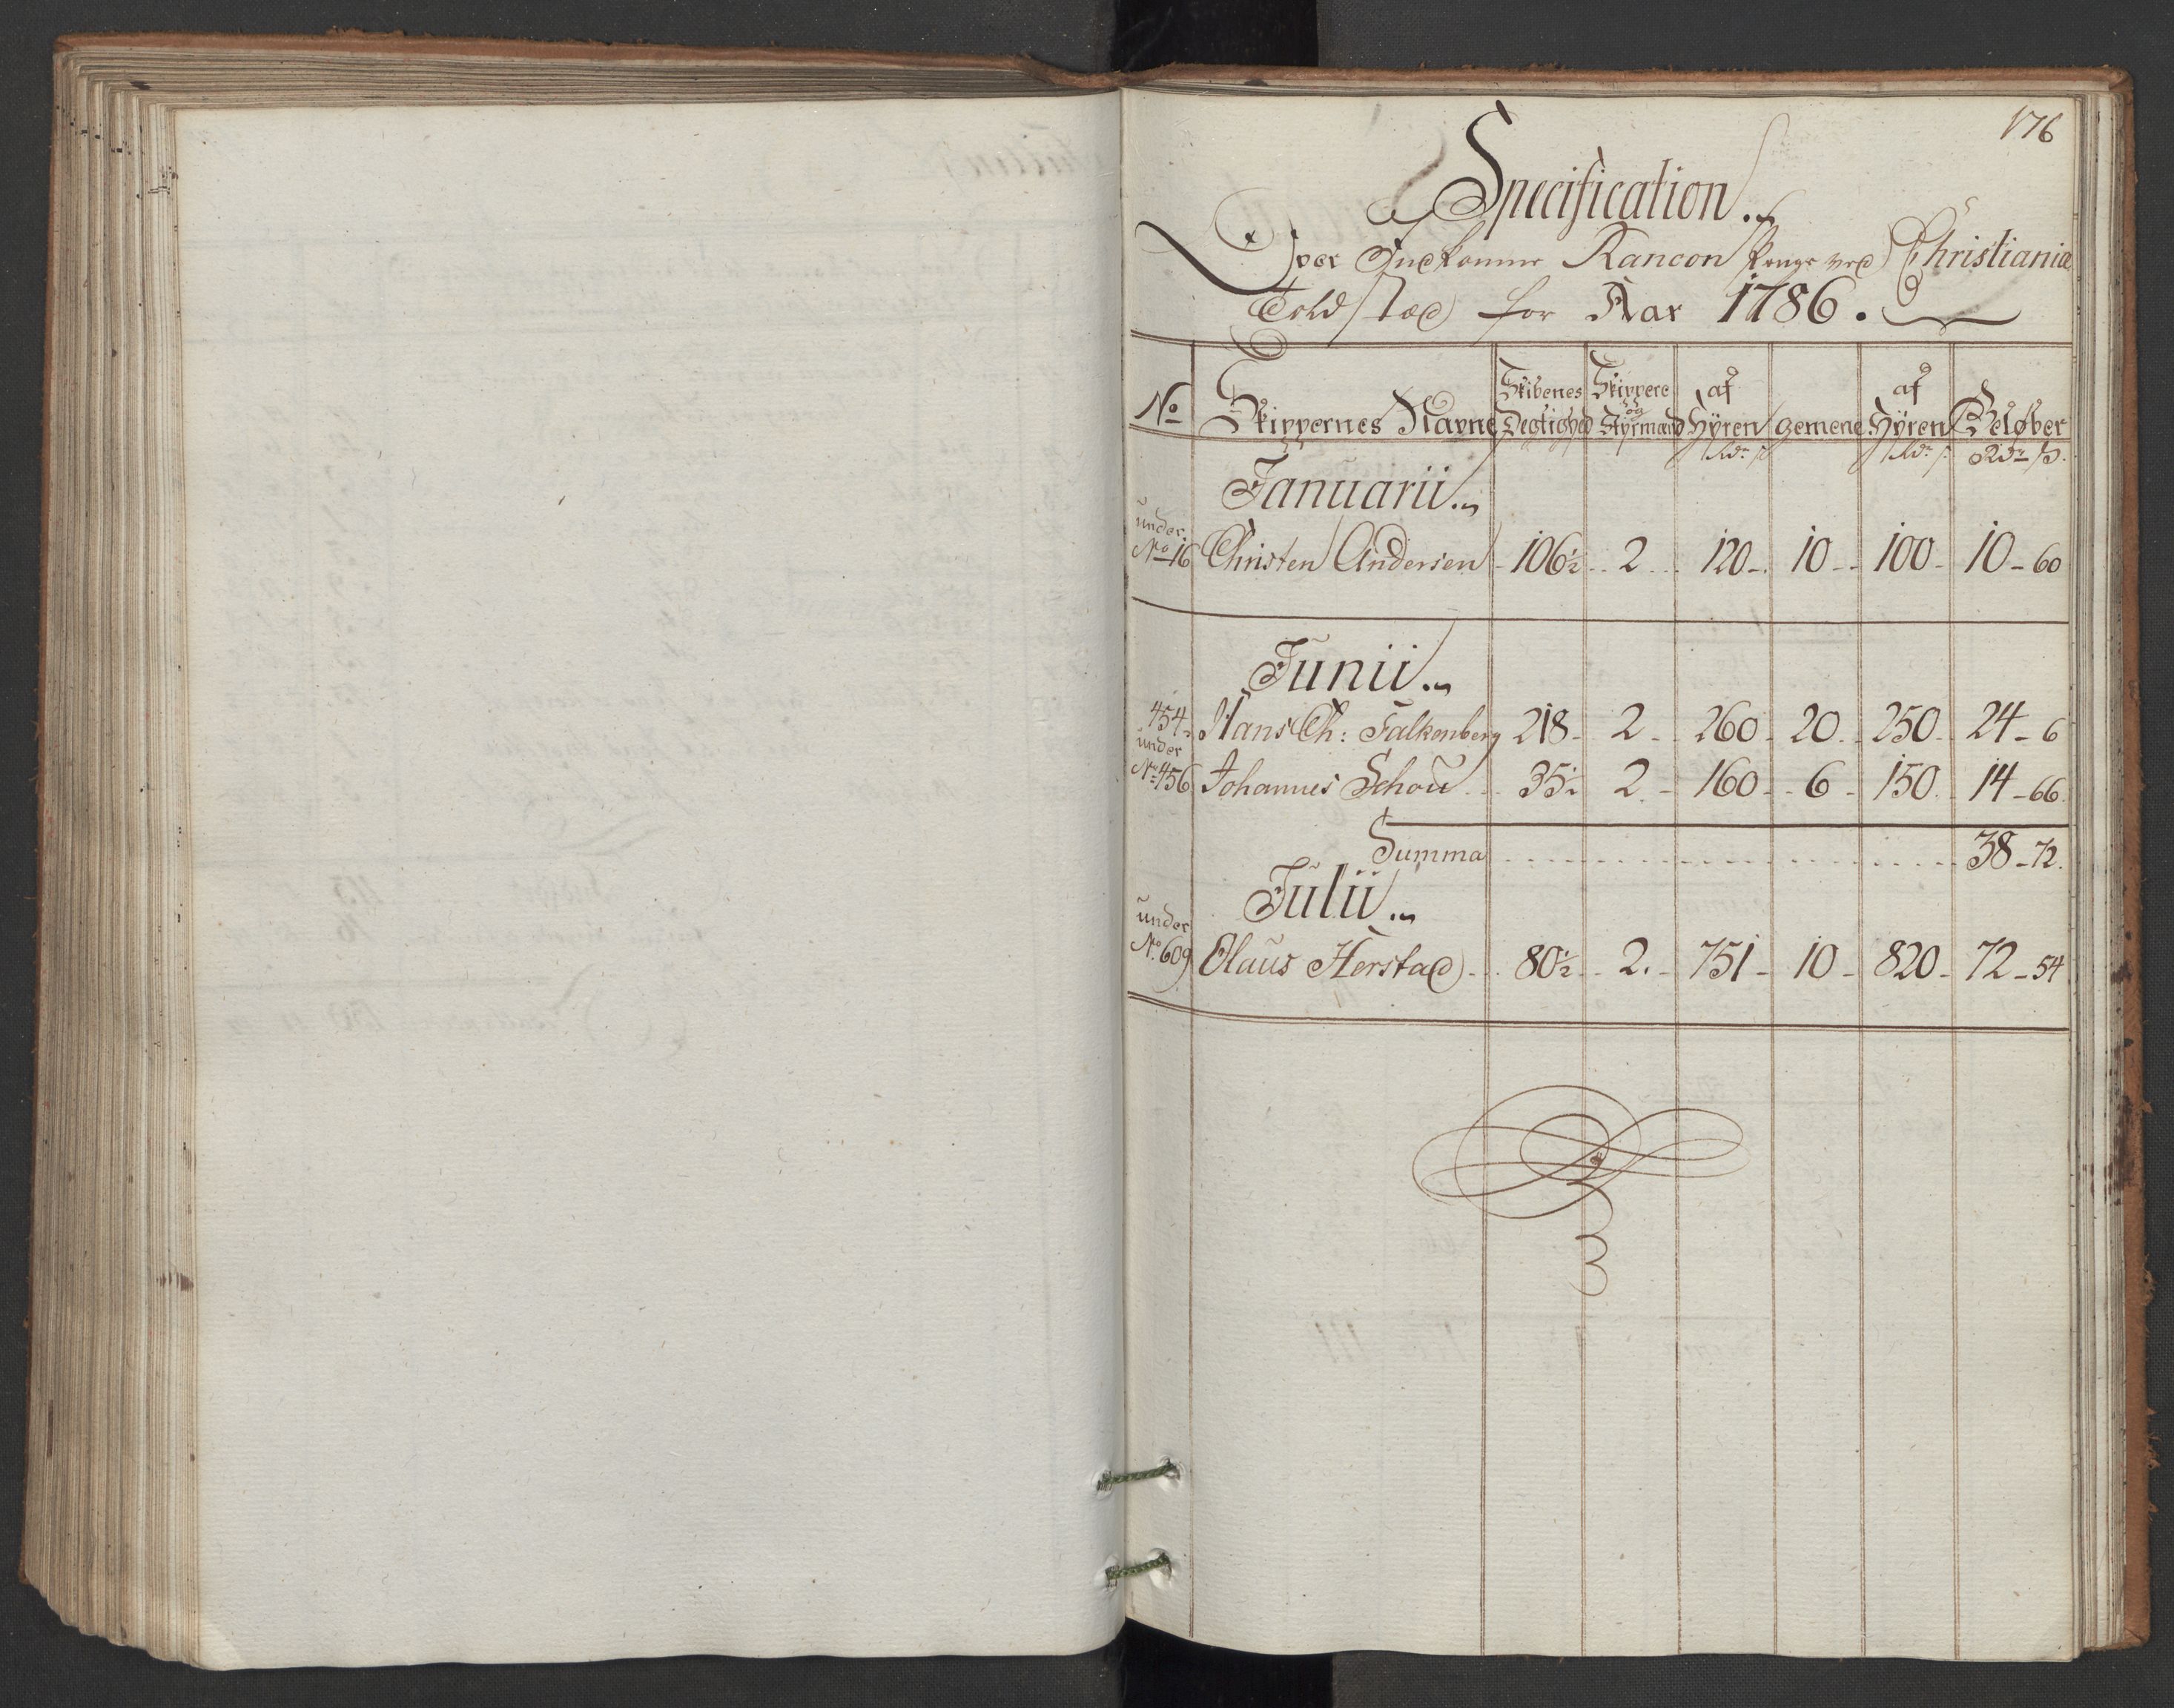 176
Specification
Over Indkomne Rancon Penge ved Christiania
Toldstæd for Aar 1786.
No Skippernes Navne Skibenes Dregtighed Skippere og Styrmænd af Hÿren gemene af Hÿren Beløber
Rdr s.
Januarii
under No 16 Christen Andersen 106½ 2 120 10 100 10 - 60
Junii
454 Hans Ch: Falkenberg 218 2 260 20 250 24 - 6
under No 456 Johannes Schou 35½ 2 160 6 150 14 - 66
Summa 38 - 72
Julii
under No. 609 Olaus Herstad 80½ 2 751 10 820 72 - 54